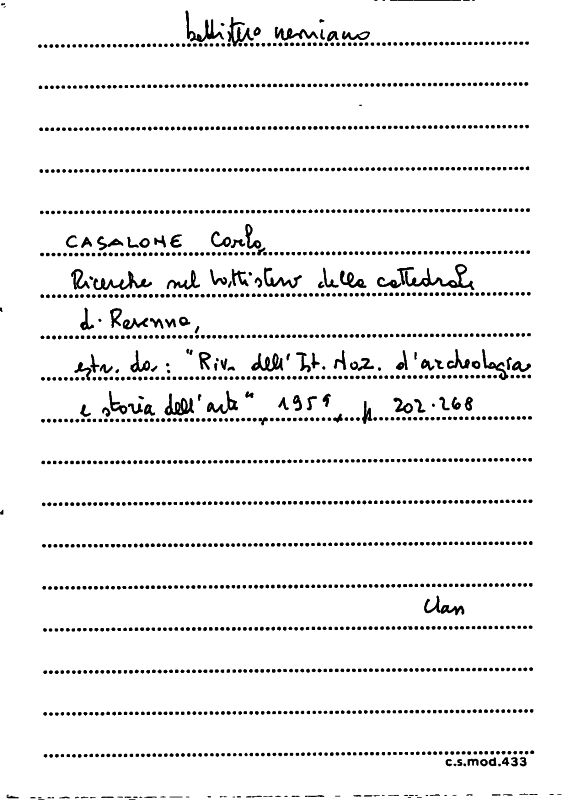 battistero neoniano
CASALONE Carla
Ricerche sul battistero della cattedrale
di Ravenna,
estr. da: "Riv. dell'Ist. Naz. d'archeologia
e storia dell'arte", 1959, p. 202-268
Clas
c.s.mod.433